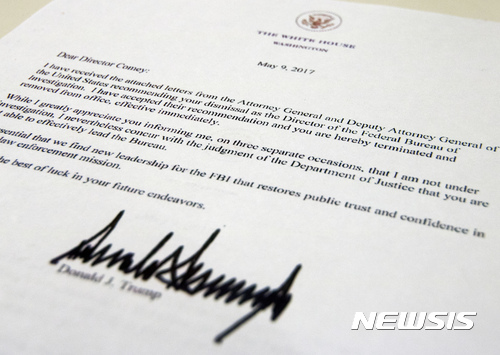 THE WHITE HOUSE
WASHINGTON
May 9, 2017
Dear Director Comey:
I have received the attached letters from the Attorney General and Deputy Attorney General of
the United States recommending your dismissal as the Director of the Federal Bureau of
Investigation. I have accepted their recommendation and you are hereby terminated and
removed from office, effective immediately.
While I greatly appreciate you informing me, on three separate occasions, that I am not under
investigation, I nevertheless concur with the judgment of the Department of Justice that you are
able to effectively lead the Bureau.
essential that we find new leadership for the FBI that restores public trust and confidence in
law enforcement mission.
the best of luck in your future endeavors.
Donald J. Trump
NEWSIS